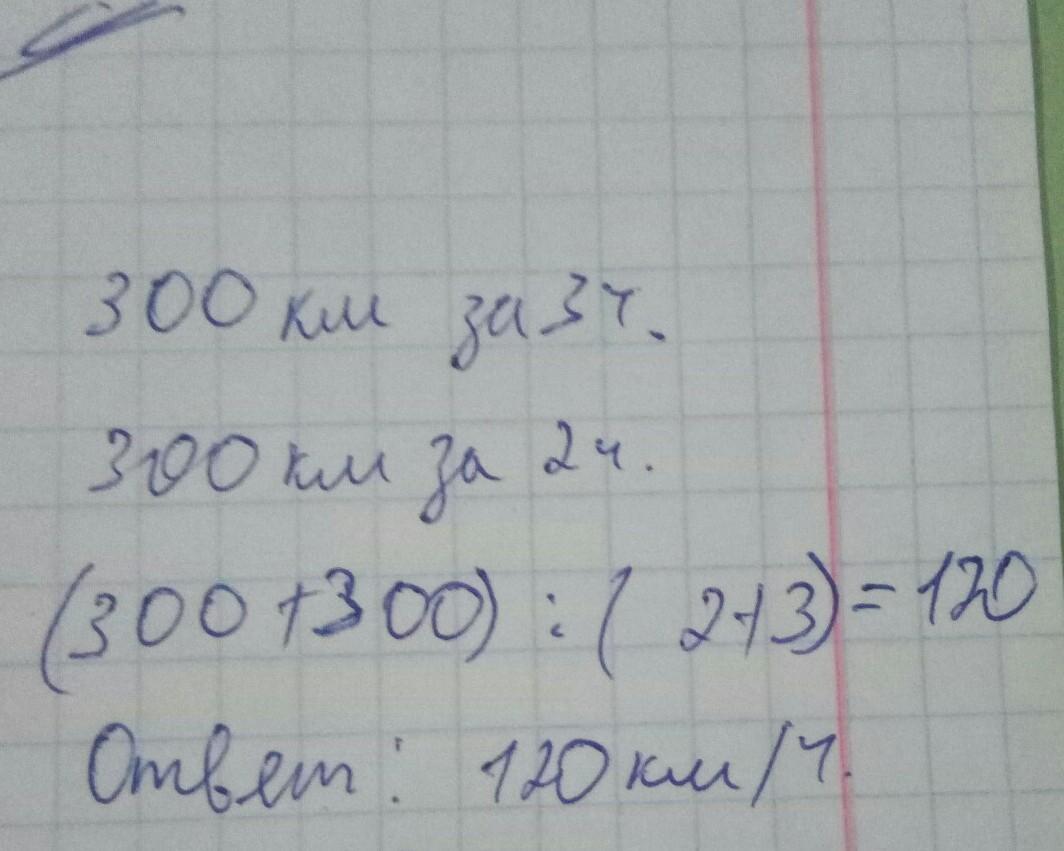 300 км за 3 ч.
300 км за 2 ч.
(300+300) : ( 2+3)=120
Ответ: 120 км/ч.